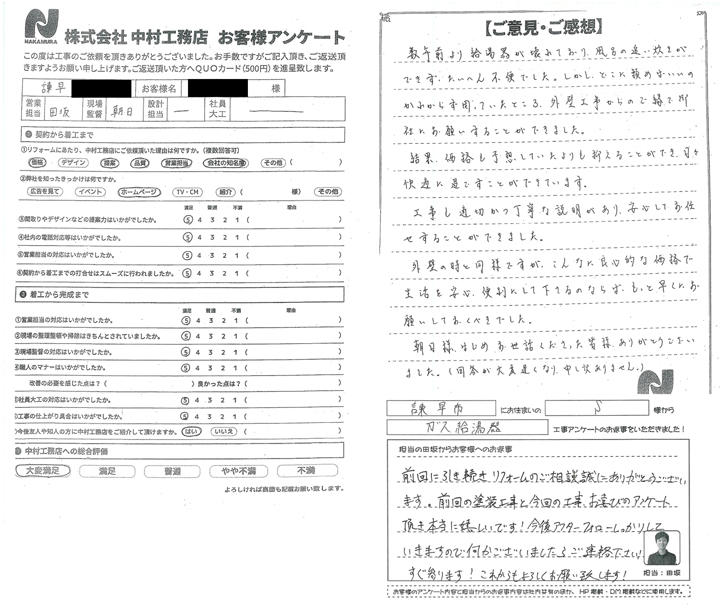 NAKAMURA
株式会社 中村工務店 お客様アンケート
この度は工事のご依頼を頂きありがとうございました。お手数ですがご記入頂き、ご返送頂
きますようお願い申し上げます。ご返送頂いた方へQUOカード(500円)を進呈致します。
諫早 お客様名 様
営業担当 田坂 現場監督 朝日 設計担当 ー 社員大工
❶ 契約から着工まで
①リフォームにあたり、中村工務店にご依頼頂いた理由は何ですか。(複数回答可)
価格 デザイン 提案 品質 営業担当 会社の知名度 その他 ( )
②弊社を知ったきっかけは何ですか。
広告を見て イベント ホームページ TV・CM 紹介 ( 様) その他
満足 普通 不満 理由
③間取りやデザインなどの提案力はいかがでしたか。 5 4 3 2 1 ( )
④社内の電話対応等はいかがでしたか。 5 4 3 2 1 ( )
⑤営業担当の対応はいかがでしたか。 5 4 3 2 1 ( )
⑥契約から着工までの打合せはスムーズに行われましたか。 5 4 3 2 1 ( )
❷ 着工から完成まで
満足 普通 不満 理由
①営業担当の対応はいかがでしたか。 5 4 3 2 1 ( )
②現場の整理整頓や掃除はきちんとされていましたか。 5 4 3 2 1 ( )
③現場監督の対応はいかがでしたか。 5 4 3 2 1 ( )
④職人のマナーはいかがでしたか。 5 4 3 2 1 ( )
改善の必要を感じた点は?( ) 良かった点は?( )
社員大工の対応はいかがでしたか。 5 4 3 2 1 ( )
工事の仕上がり具合はいかがでしたか。 5 4 3 2 1 ( )
今後友人や知人の方に中村工務店をご紹介して頂けますか。 はい いいえ ( )
中村工務店への総合評価
大変満足 満足 普通 やや不満 不満
よろしければ裏面も記載お願い致します。
【ご意見・ご感想】
数年前より給湯器が壊れており、風呂の追い炊きが
できず、たいへん不便でした。しかし、どこに頼めばいいの
かわからず困っていたところ、外壁工事からの縁で御
社にお願いすることができました。
結果、価格も予想していたよりも抑えることができ、日々
快適に過ごすことができています。
工事も適切かつ丁寧な説明があり、安心してお任
せすることができました。
外壁の時と同様ですが、こんなに良心的な価格で
生活を安心、便利にして下さるのならば、もっと早くにお
願いしておくべきでした。
朝日様はじめお世話くださった皆様、ありがとうござい
ました。(回答が大変遅くなり、申し訳ありません。)
諫早市 にお住まいの S 様から
ガス給湯器 工事アンケートのお返事をいただきました!
担当の田坂からお客様へのお返事
前回に引き続きリフォームのご相談誠にありがとうござい
ます。前回の塗装工事と今回の工事、お喜びのアンケート
頂き本当に嬉しいです!今後アフターフォローしっかりして
いきますので何かございましたらご連絡下さい
すぐ参ります!これからもよろしくお願い致します!
担当:田坂
お客様のアンケート内容と担当からのお返事内容は社内共有のほか、HP掲載・DM掲載などに使用します。